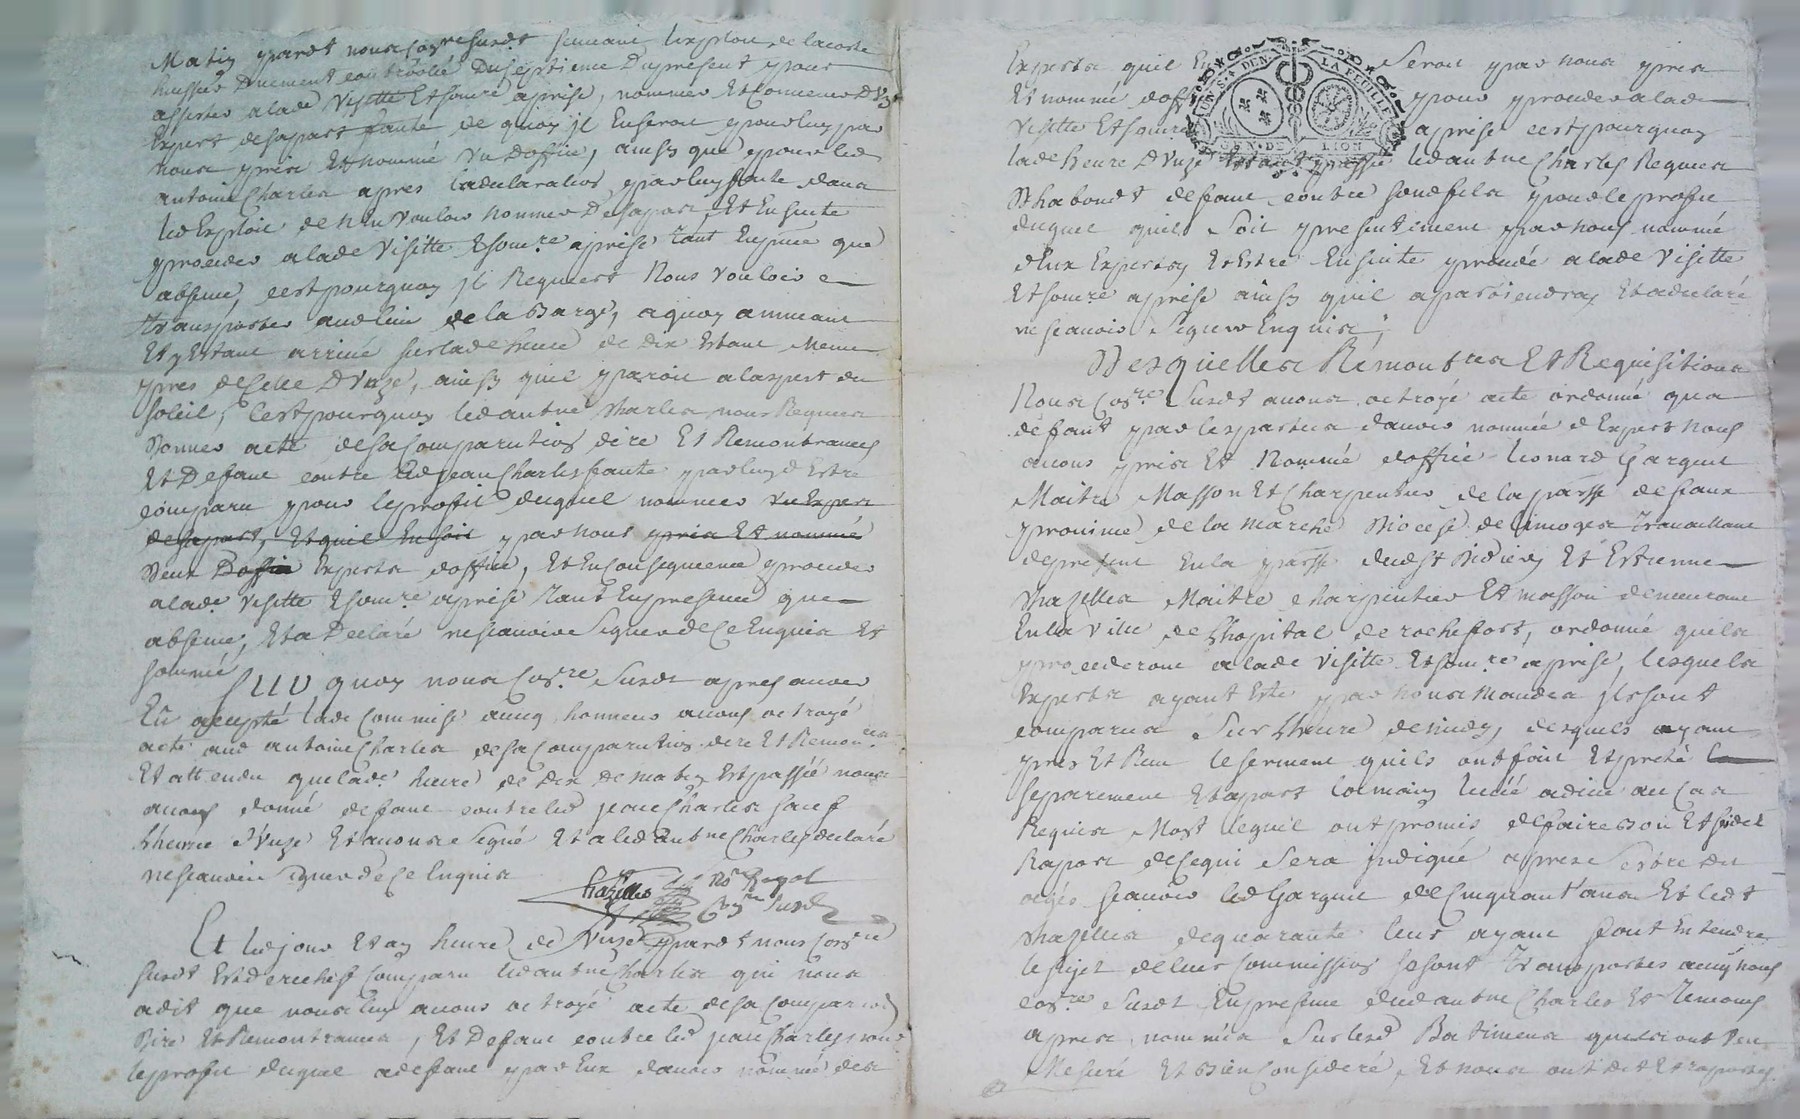 Matin pardt nous Cosre susdt suivant lexploit de lacoste
huissier duement controllé du septieme du present pour
assister a lade Visitte Et somre aprise, nommer Et convenir d'un
Expert de sa part faute de quoy il En seroit pour luy par
nous pris Et nommé un doffice, ainsy que pour led
antoine Charles apres la declaration par luy faite dans
led Exploit de n'en vouloir nommer de sa part, Et En suite
proceder a lade Visitte Et somre aprise tant En pnce que
absence, cest pourquoy il Requiert Nous vouloir
transporter aud lieu de la Barge, a quoy a
Et y Estant arrivé sur lade heure de dix Estant Meme
pres de celle d'unze, ainsy quil paroit a laspect du
soleil, c'est pourquoy led antne Charles nous Requiert
donner acte de sa comparution dire Et Remontrances
Et deffaut contre led jean Charles faute par luy d'Estre
comparu pour le profit duquel nommer un Expert
de sa part, Et quil En soit par nous pris Et nommé
deux doffice Experts doffice, Et En consequence proceder
a lade visitte Et somre aprise tant En presence que
absence, Et a Declaré ne scavoir signer de ce Enquis Et
sommé
Sur quoy nous Cosre susdt apres avoir
Eu accepté lade commisse avecq honneur avons octroyé
acte aud antoine Charles de sa comparution dire Et Remonces
Et attendu que lade heure de dix de matin Est passée nous
avons donné deffaut contre led jean Charles sauf
lheure d'unze Et avons signé Et a led antne Charles declaré
ne scavoir signer de ce Enquis
Chazilles Nre Royal
Cosre susdt
Et led jour Et an heure de d'unze pardt nous Cosre
susdt Est derechef comparu led antne Charles qui nous
a dit que nous luy avons octroyé acte de sa comparution
dire Et Remontrances, Et deffaut contre led jean Charles pour
le profit duquel a deffaut par Eux davoir nommé des
Experts quil En Seroit par nous pris
Et nommé doffice pour proceder a lade
visitte Et somre aprise cest pourquoy
lade heure d'unze Estant passée led antne Charles Requiert
deffaut contre sond fils pour le profit
duquel quil soit presentement par nous nommé
deux Experts, Et Estre En suite procedé a lade Visitte
Et somre aprise ainsy quil apartiendra, Et a declaré
ne scavoir signer Enquis;
UN S. 4 DEN. LA FEUILLE
GEN. DE LION
Desquelles Remontces Et Requisitions
Nous Cosre susdt avons octroyé acte ordonné qua
deffaut par les parties davoir nommé d'Expert nous
avons pris Et Nommé doffice Leonard Gargue
Maitre Masson Et Charpentier de la parsse de faux
province de la marche diocese de limoges travaillant
de present En la parsse dud st didier, Et Estienne
Chazelles Maitre charpentier Et masson demeurant
En la Ville de lhopital de rochefort, ordonné quils
procederont a lade Visitte Et somre aprise, lesquels
Experts ayant Esté par nous mandés ils sont
comparus sur lheure de midy, desquels ayant
pris Et Reçu le serment quils ont fait Et preté
separement Et apart la main levée a dieu au cas
Requis Moyt lequel ont promis de faire bon Et fidel
Raport de ce qui sera indiqué apres s'estre dit
agés scavoir led Gargue de cinquant'ans Et led
Chazelles de quarante leur ayant fait Entendre
le sujet de leur commission se sont transportés avecq nous
Cosre susdt En presence dud antne Charles Et temoins
apres nommés sur lesd Batimens quils ont veu
Mesuré Et bien consideré, Et nous ont dit Et raporté,